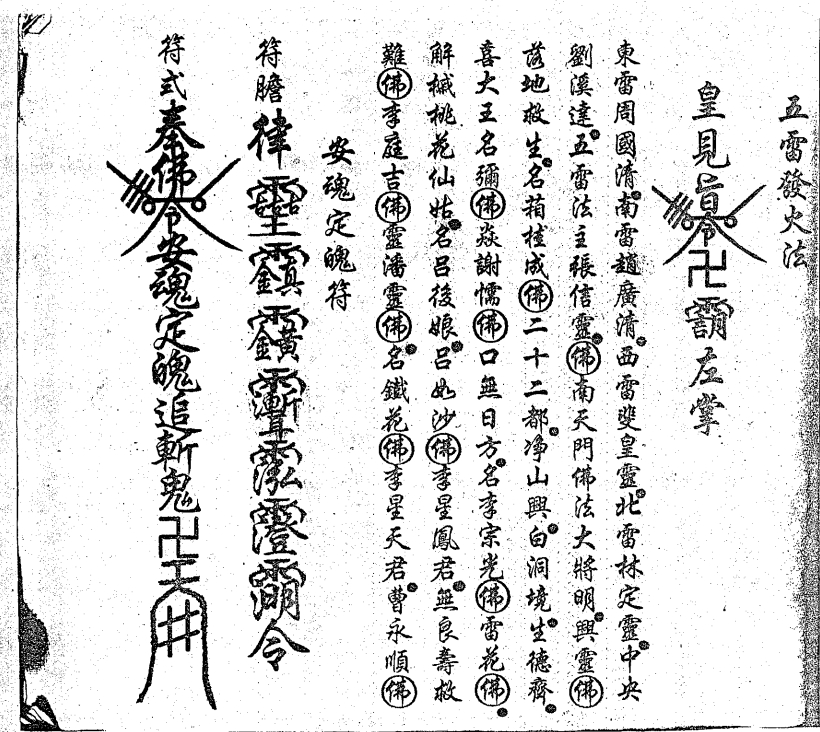 五雷發火法
皇見旨令卍 左掌
東雷周國清南雷趙廣清西雷斐皇靈北雷林定靈中央
劉溪達五雷法主張信靈佛南天門佛法大將明興靈佛
落地救生名 桂成佛二十二都净山興白洞境生德齊
喜大王名彌佛焱謝懦佛口無日方名李宗光佛雷花佛
解械桃花仙姑名呂後娘呂 沙佛李星鳳君無良壽救
難佛李庭吉佛靈潘靈佛名鐵花佛李星天君曹永順佛
安魂定魄符
符膽 律 令
符式 奉佛令安魂定魄追斬鬼卍王井